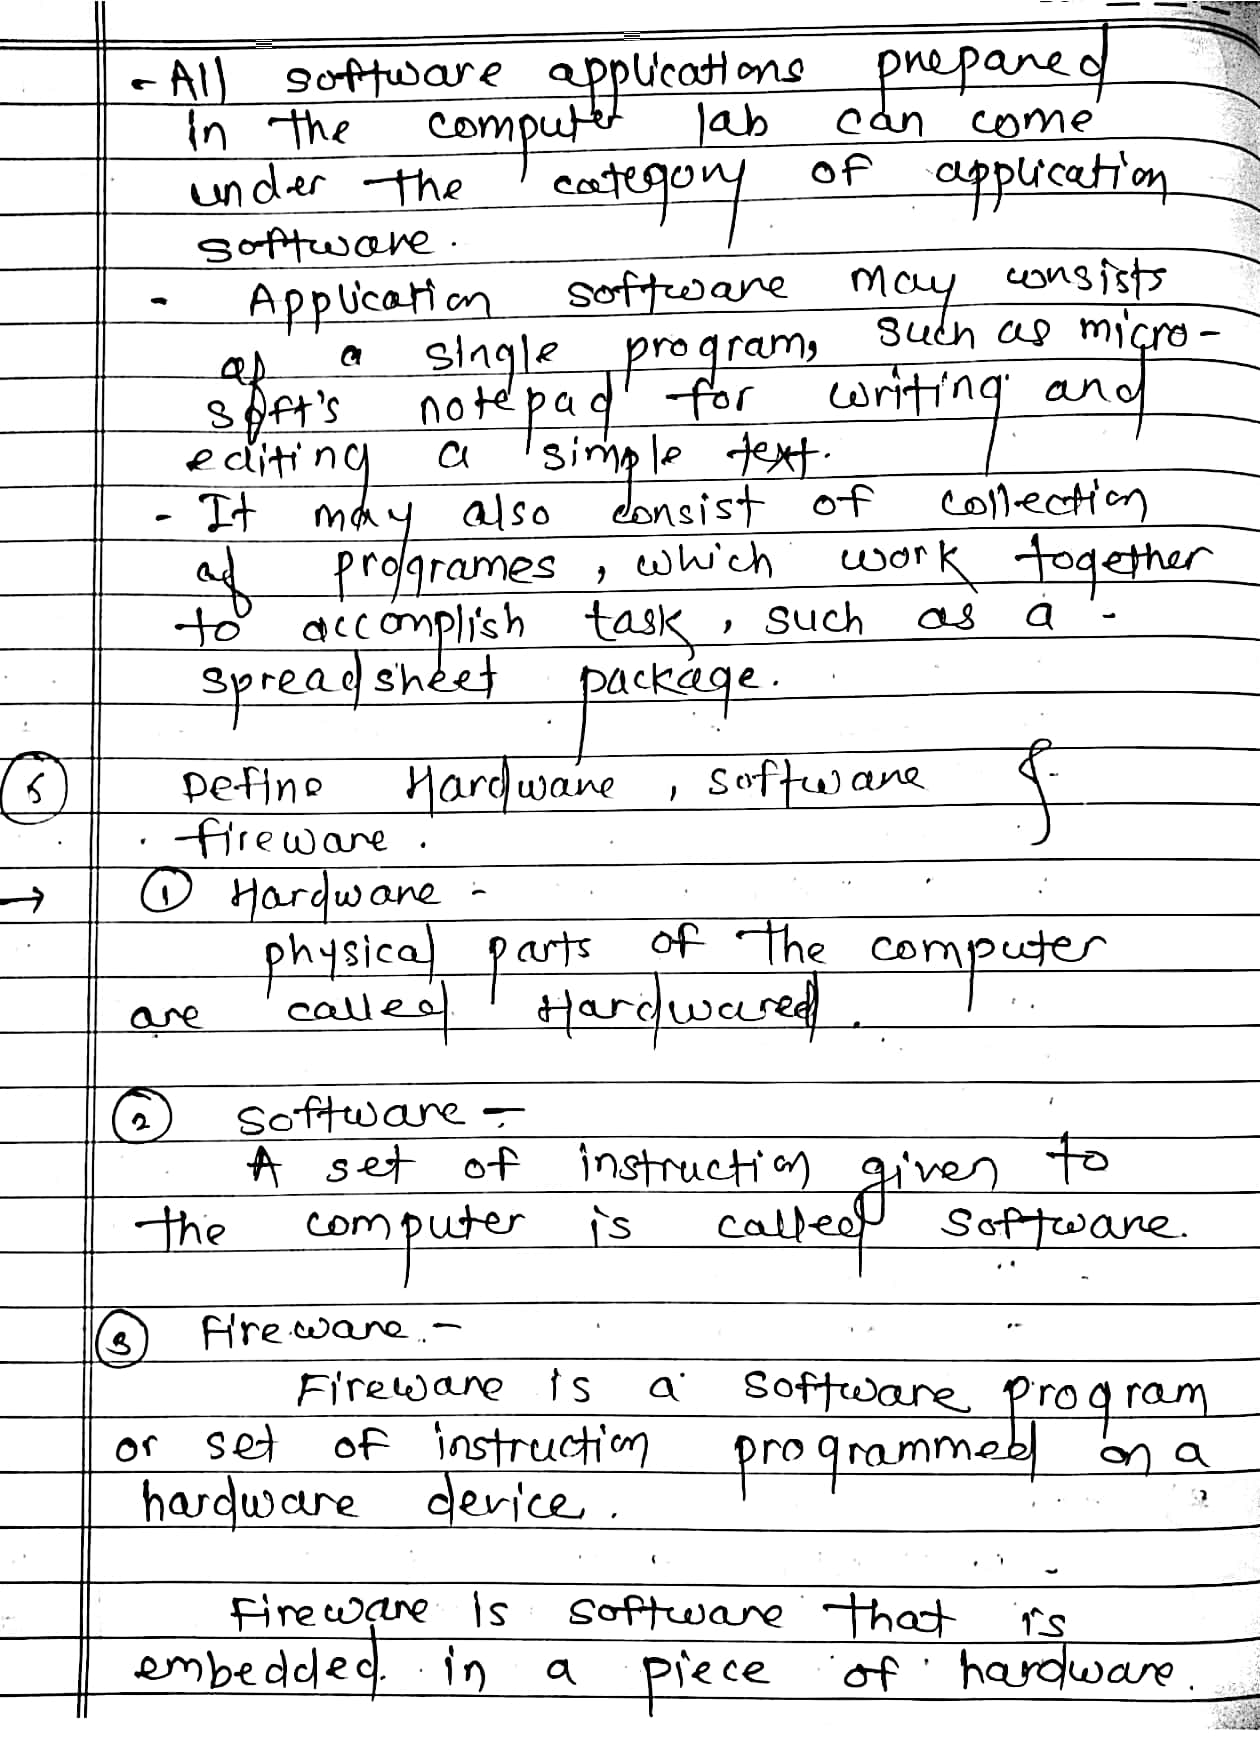 - All software applications prepared
in the computer lab can come
under the category of application
software.
- Application software may consists
of a single program, such as micro-
soft's notepad for writing and
editing a simple text.
- It may also consist of collection
of programes, which work together
to accomplish task, such as a -
spreadsheet package.
5 Define Hardware, software &
fireware.
→ 1 Hardware -
physical parts of the computer
are called Hardwared.
2 software -
A set of instruction given to
the computer is called software.
3 Fireware -
Fireware is a software program
or set of instruction programmed on a
hardware device.
Fireware is software that is
embedded in a piece of hardware.